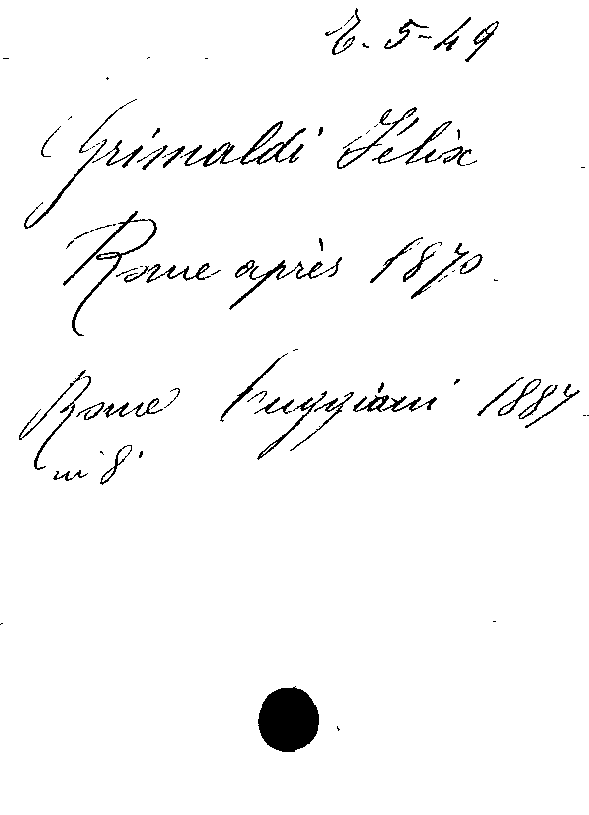 E. 5-49
Grimaldi Félix
Rome après 1870.
Rome Puggiani 1887
in 8°